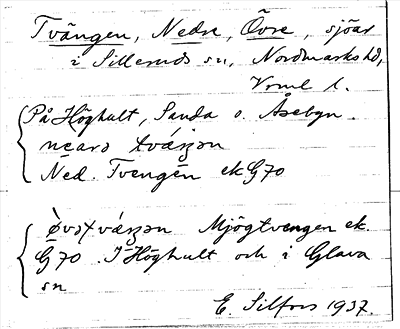 Tvängen, Nedre, Övre, sjöar
i Silleruds sn, Nordmarks hd,
Vrml l.
På Höghult, Sanda o. Åsebyn.
nęarə tváŋən
Ned. Tvengen ek G70
øvrə tváŋən Mjögtvengen ek.
G70. I Höghult och i Glava
sn
E. Silfors 1937.